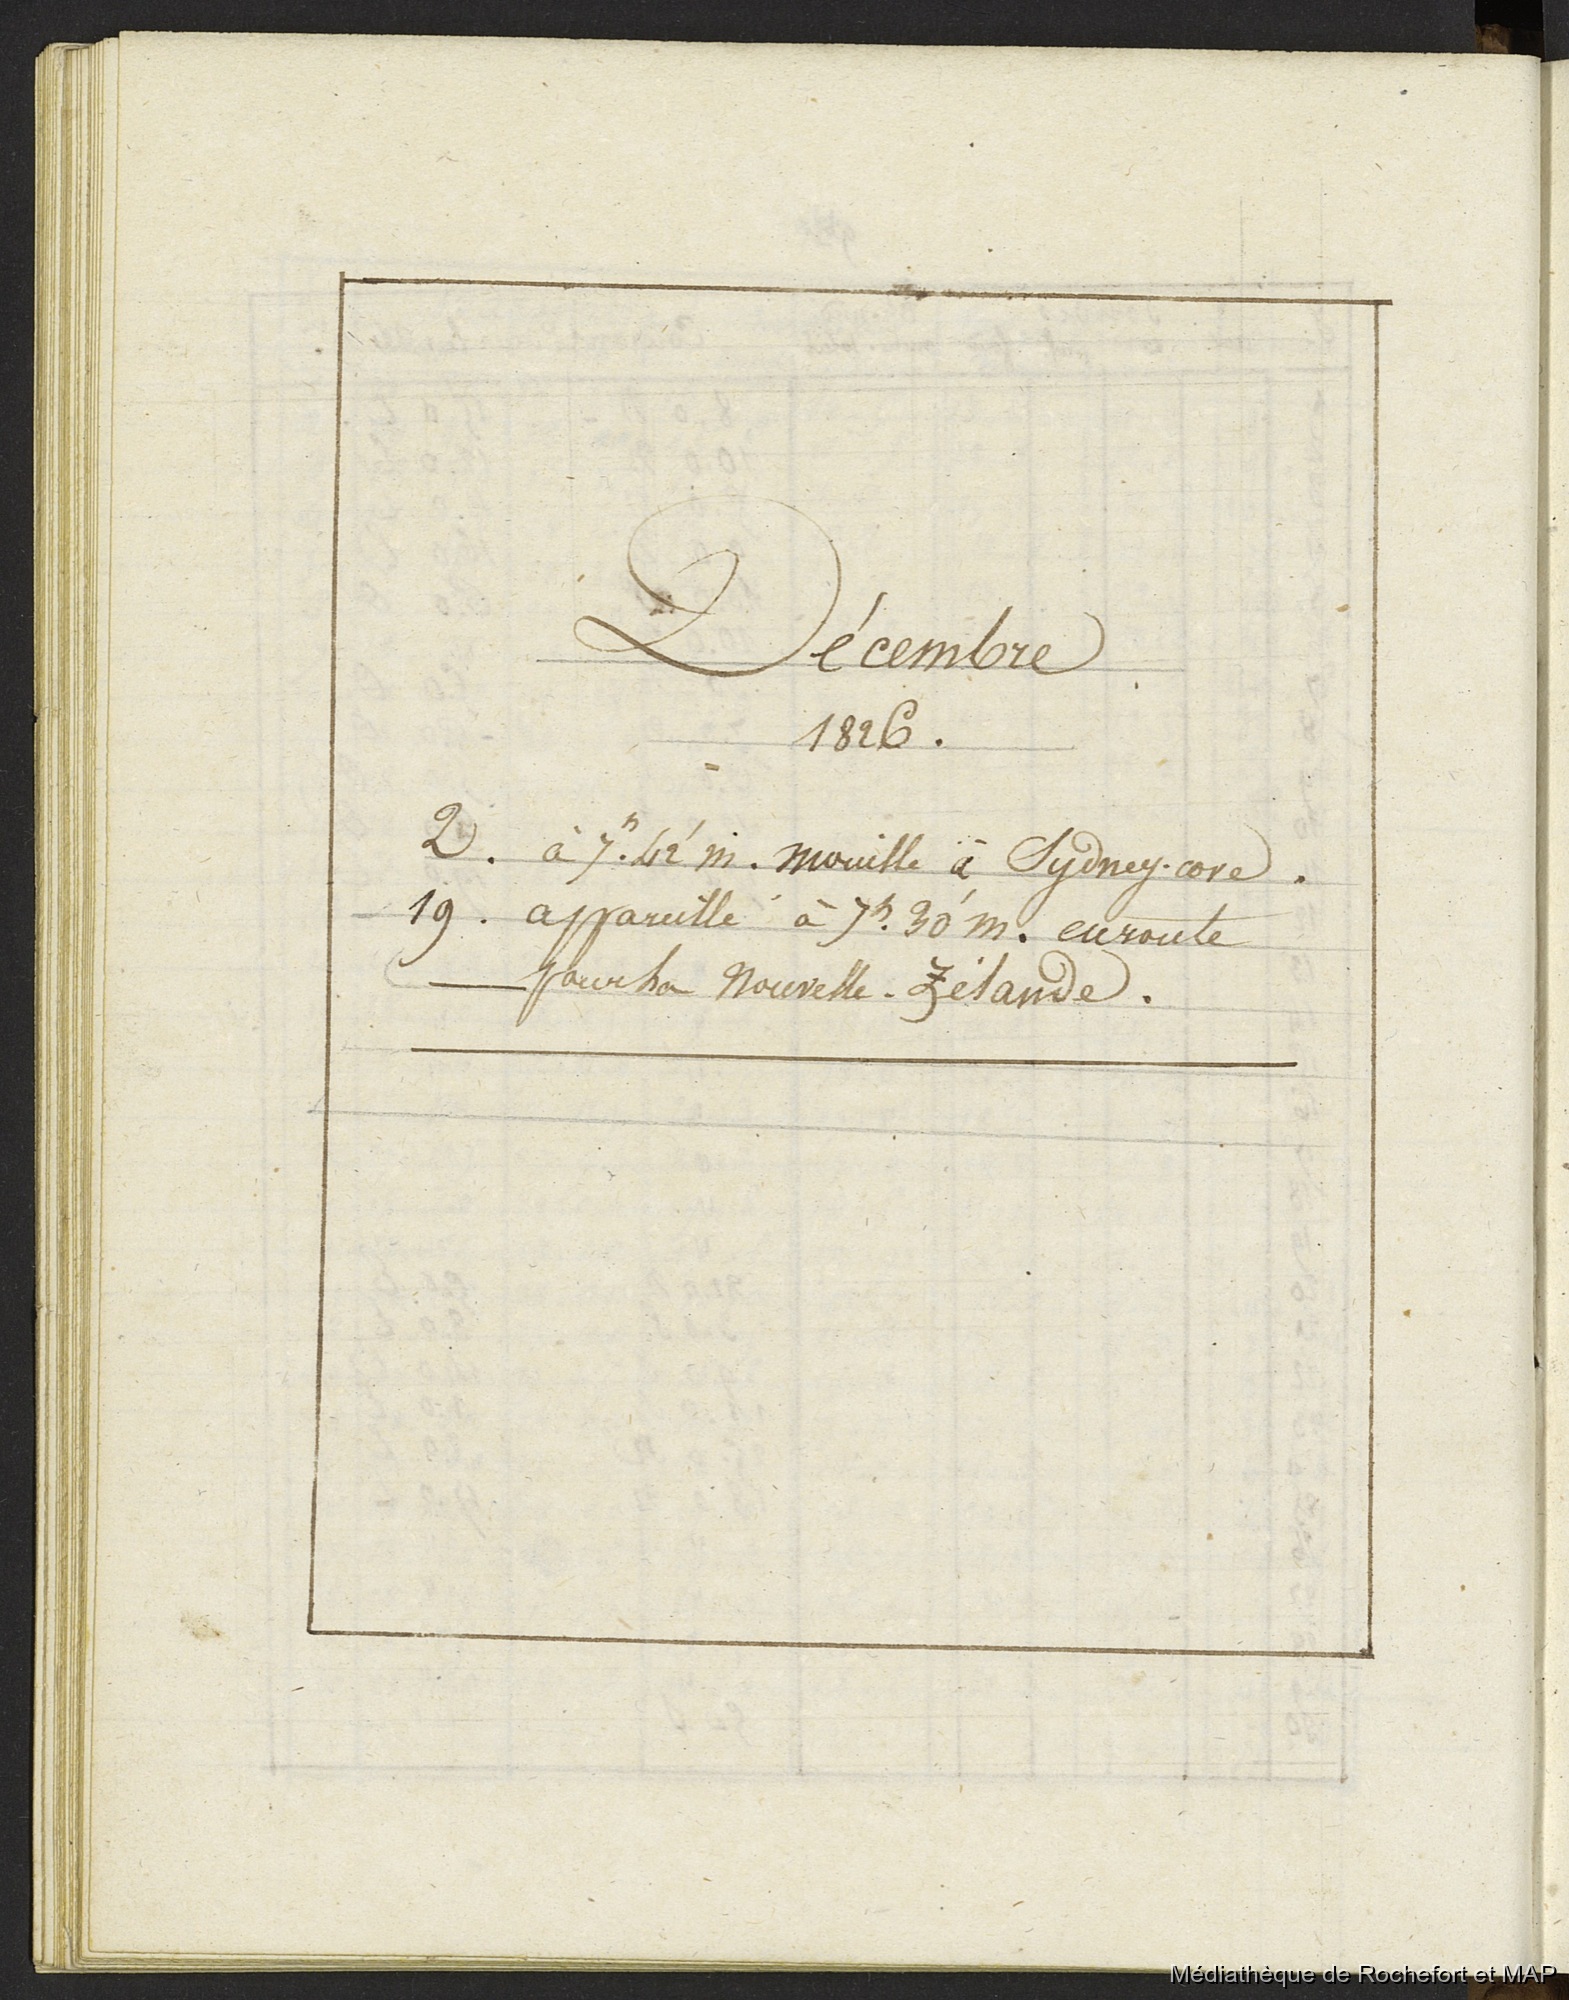 Décembre
1826.
2. à 7h. 42' m. mouillé à Sydney-cove.
19. appareillé à 7h. 30' m. en route
pour la Nouvelle-Zélande.
Médiathèque de Rochefort et MAP